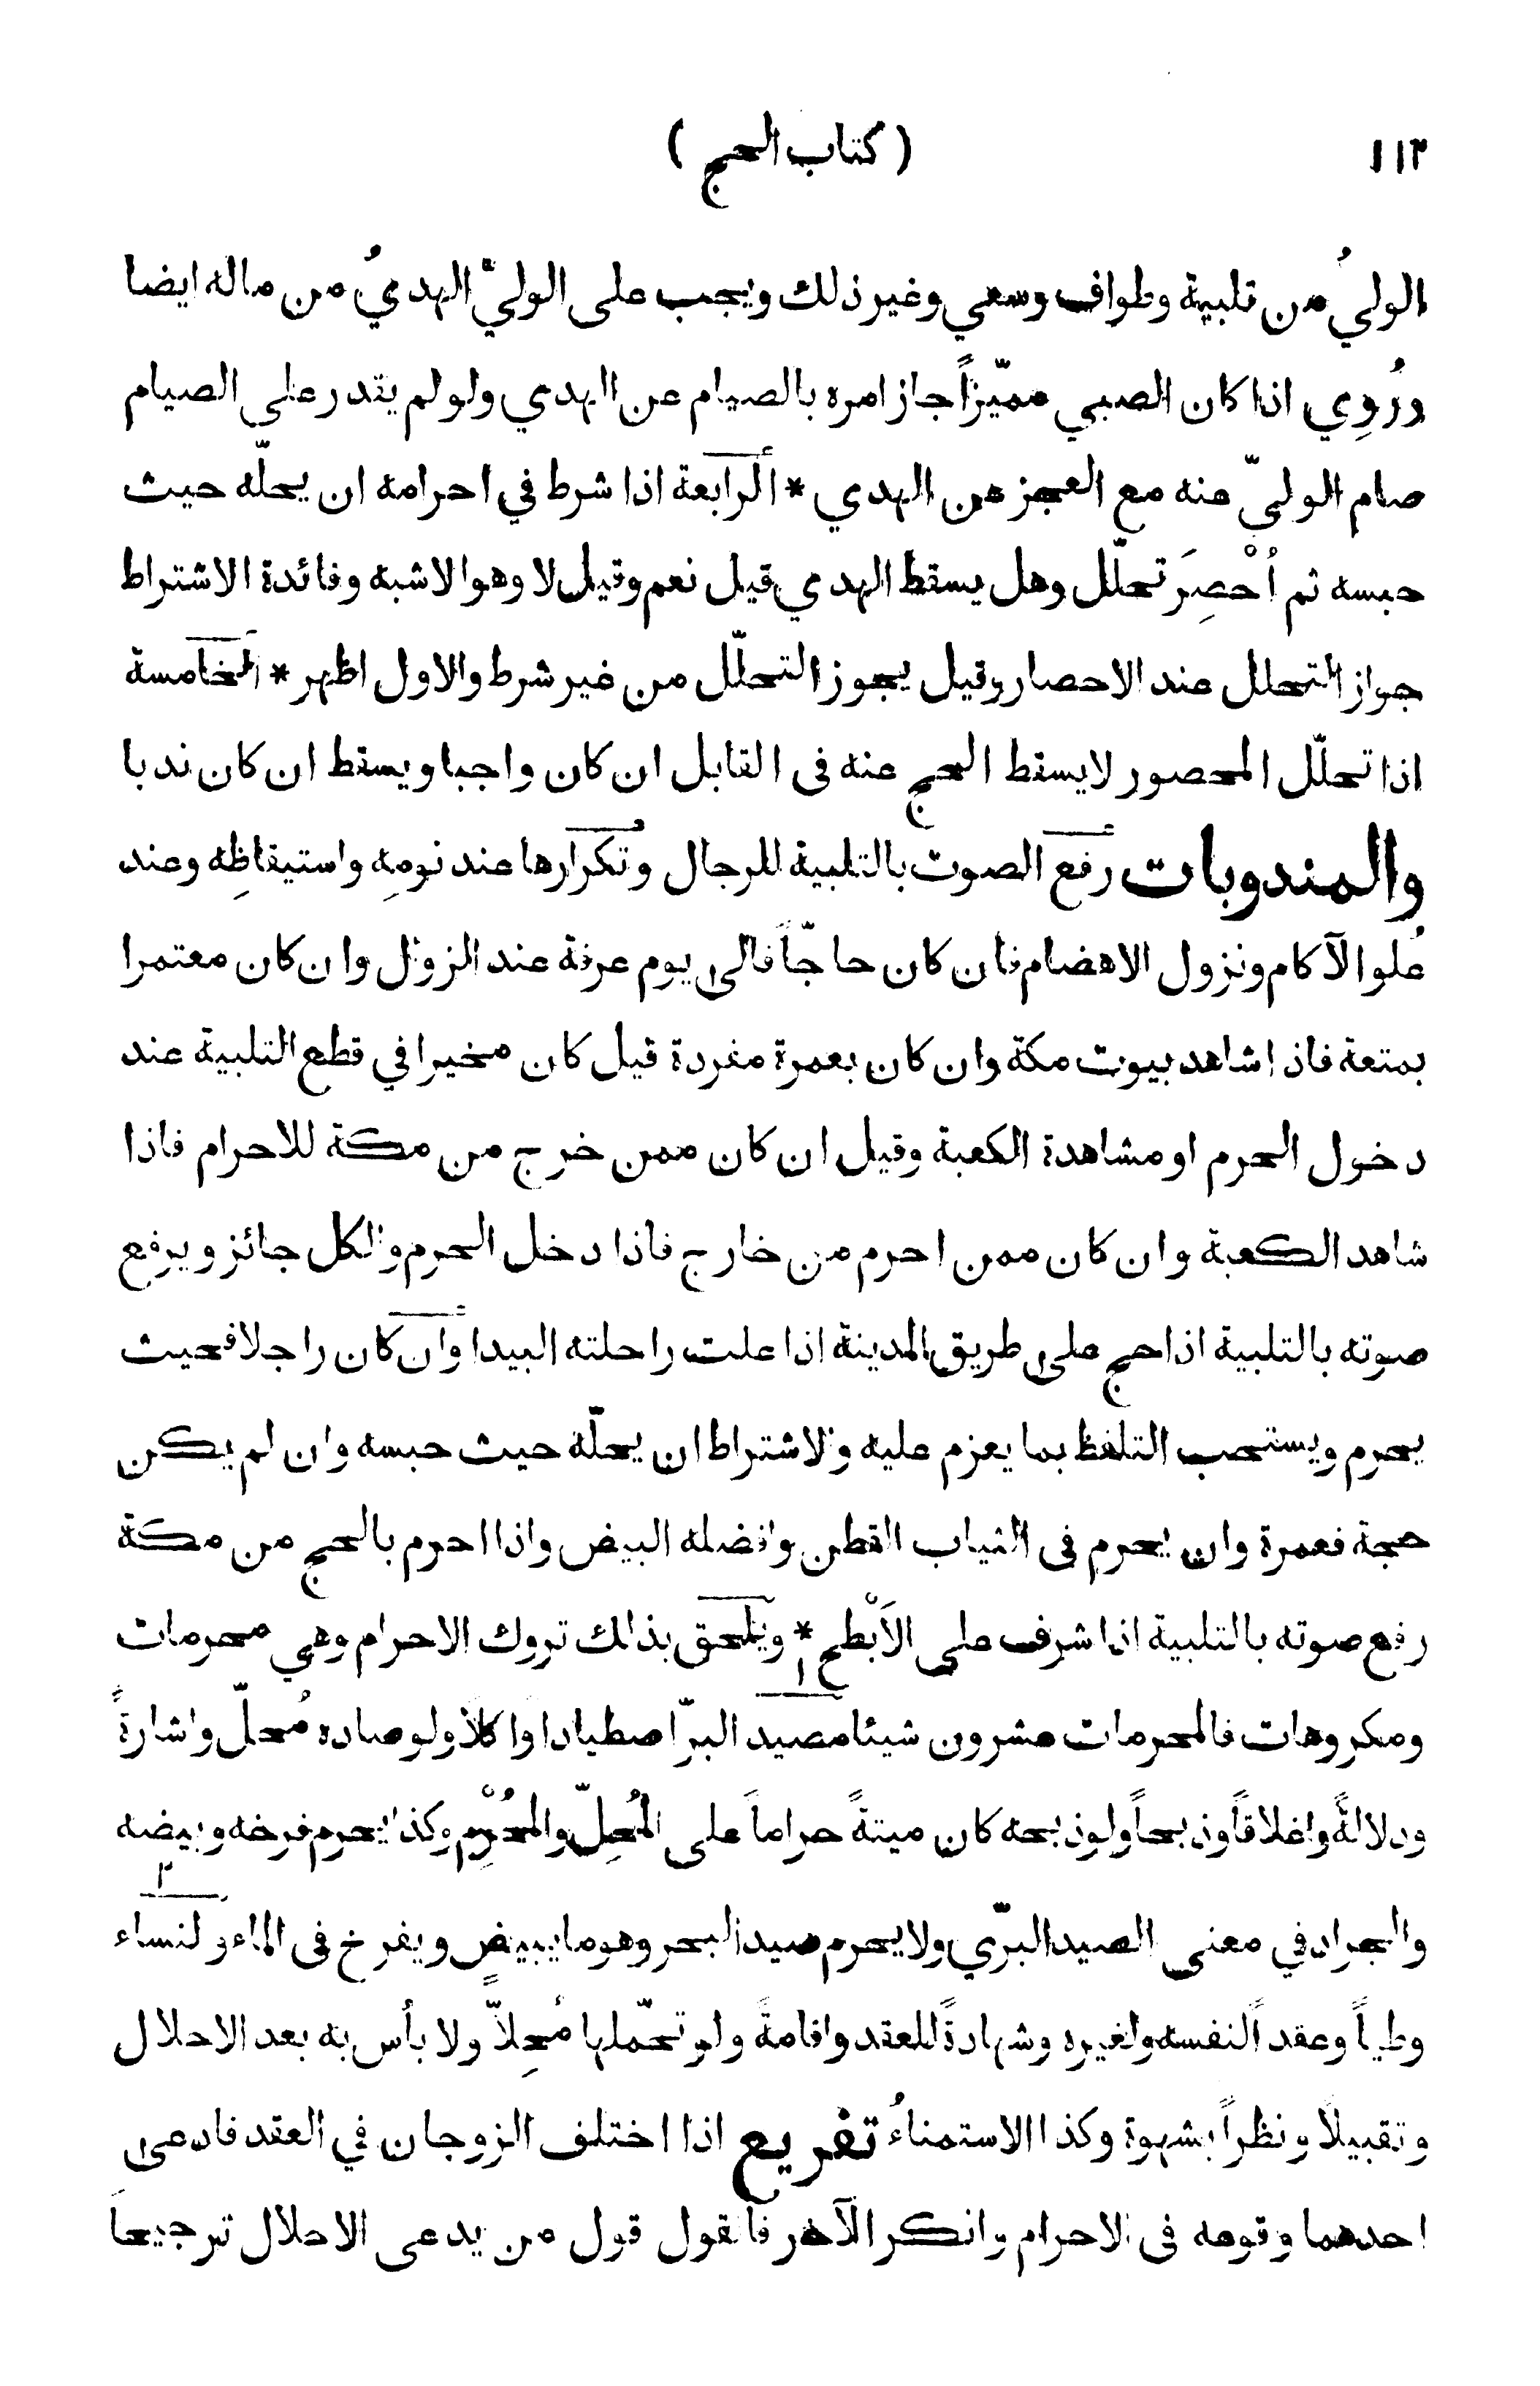 ١١٢ ( كتاب الحج )
الوليُ من تلبية وطواف وسعي وغير ذلك ويجب على الوليّ الهديُ من ماله ايضا
ورُوِي اذا كان الصبي مميّزاً جاز امره بالصيام عن الهدي ولو لم يقدر على الصيام
صام الوليّ عنه مع العجز عن الهدي * الرابعة اذا شرط في احرامه ان يحلّه حيث
حبسه ثم اُحْصِرَ تحلّل وهل يسقط الهدي قيل نعم وقيل لا وهو الاشبه وفائدة الاشتراط
جواز التحلل عند الاحصار وقيل يجوز التحلّل من غير شرط والاول اظهر * الخامسة
اذا تحلّل المحصور لا يسقط الحج عنه فى القابل ان كان واجبا ويسقط ان كان ندبا
والمندوبات رفع الصوت بالتلبية للرجال وتكرارها عند نومِه واستيقاظِه وعند
عُلو الآكام ونزول الاهضام فان كان حاجّاً فالى يوم عرفة عند الزوال وان كان معتمرا
بمتعة فاذا شاهد بيوت مكة وان كان بعمرة مفردة قيل كان مخيرا في قطع التلبية عند
دخول الحرم او مشاهدة الكعبة وقيل ان كان ممن خرج من مكة للاحرام فاذا
شاهد الكعبة وان كان ممن احرم من خارج فاذا دخل الحرم والكل جائز ويرفع
صوته بالتلبية اذا حج على طريق المدينة اذا علت راحلته البيدا وان كان راجلا فحيث
يحرم ويستحب التلفظ بما يعزم عليه والاشتراط ان يحلّه حيث حبسه وان لم يكن
حجة فعمرة وان يحرم فى الثياب القطن وافضله البيض واذا احرم بالحج من مكة
رفع صوته بالتلبية اذا شرف على الاَبْطح * ويلحق بذلك تروك الاحرام وهي محرمات
١
ومكروهات فالمحرمات عشرون شيئا مصيد البرّ اصطيادا واكلاً ولو صاده مُحلّ واشارةً
ودلالةً واغلاقاً وذبحاً ولو ذبحه كان ميتةً حراماً على المُحِلّ والمُحْرِم وكذا يحرم فرخه وبيضه
٢
والجراد في معنى الصيد البرّي ولا يحرم صيد البحر وهو ما يبيض ويفرخ فى الماء والنساء
وطياً وعقداً لنفسه ولغيره وشهادةً للعقد واقامةً ولو تحمّلها مُحِلاًّ ولا بأس به بعد الاحلال
وتقبيلاً ونظراً بشهوة وكذا الاستمناءُ تفريع اذا اختلف الزوجان في العقد فادعى
احدهما وقوعه فى الاحرام وانكر الآخر فالقول قول من يدعى الاحلال ترجيحاً